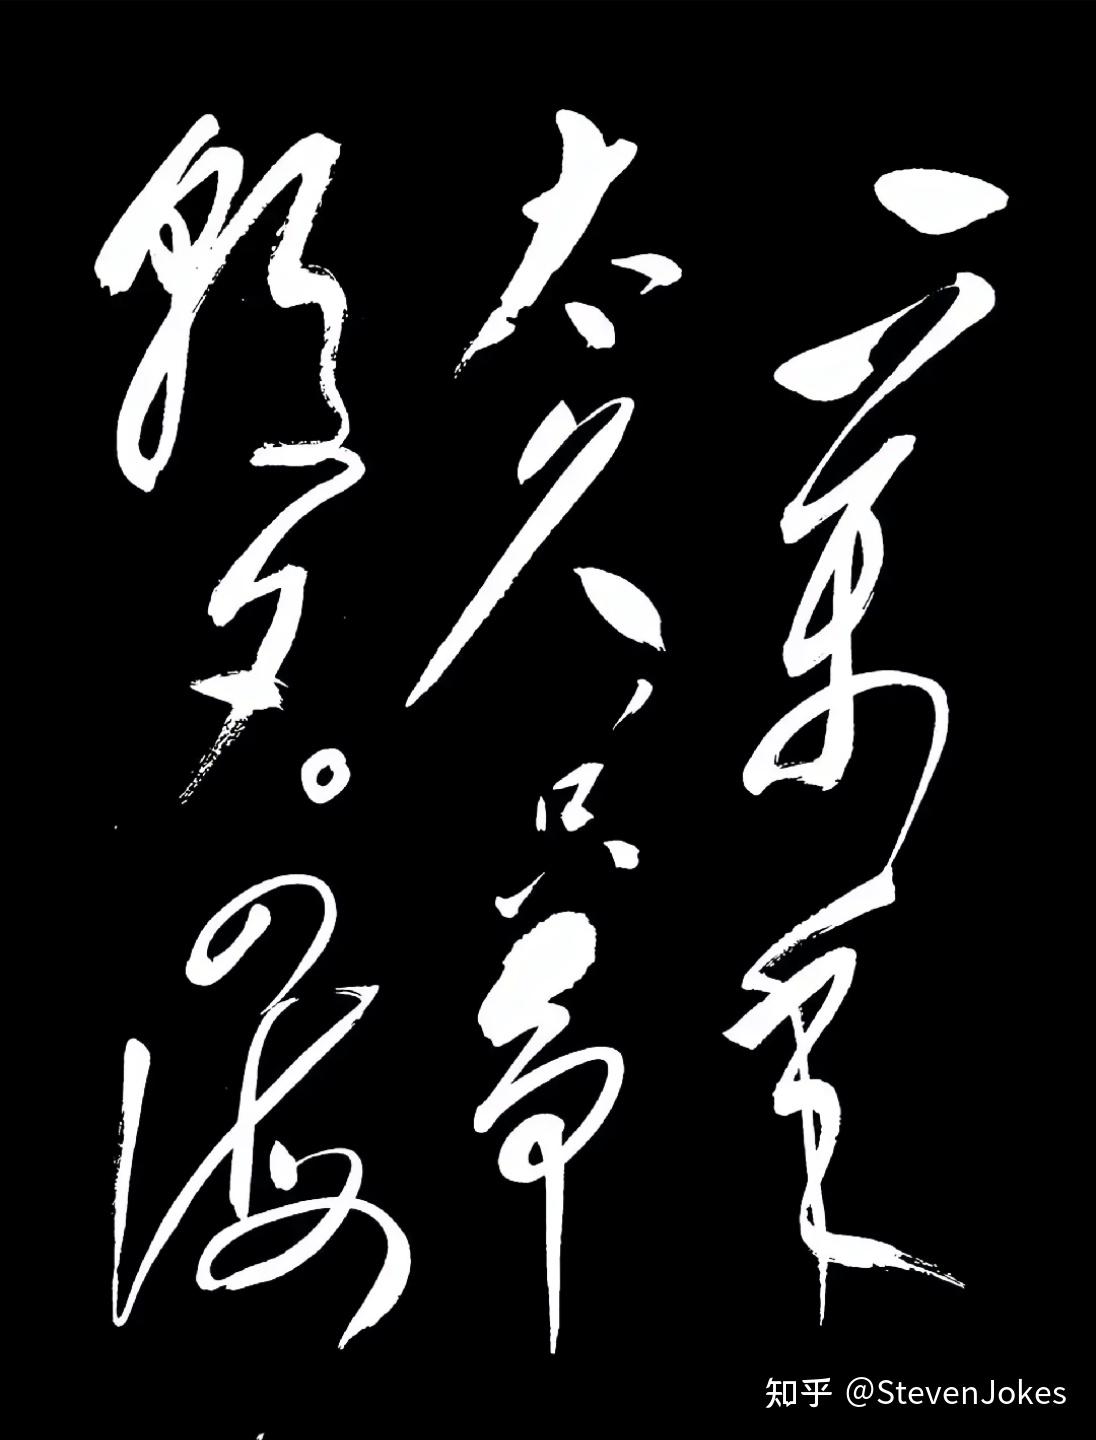 一万年
太久，只争
朝夕。四海
知乎 @StevenJokes